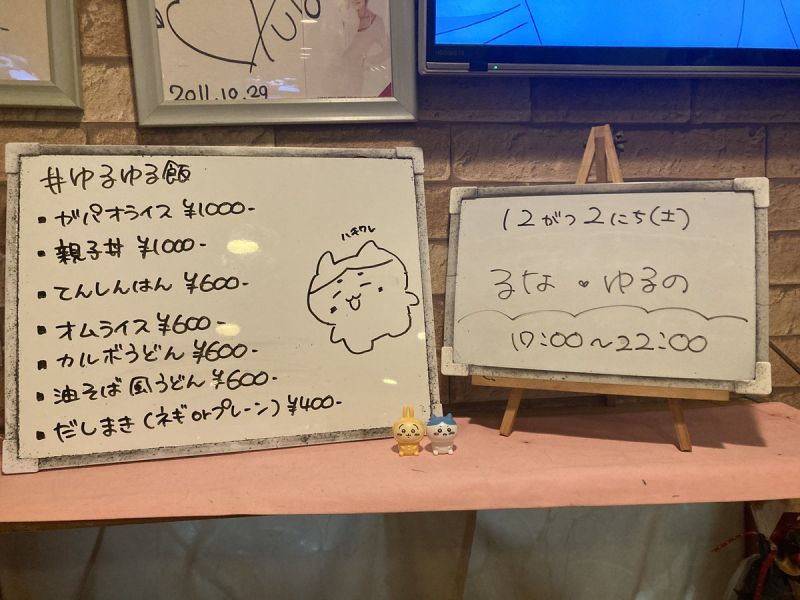 2011.10.29
#ゆるゆる飯
▪ガパオライス ¥1000-
▪親子丼 ¥1000-
▪てんしんはん ¥600-
▪オムライス ¥600-
▪カルボうどん ¥600-
▪油そば風うどん ¥600-
▪だしまき(ネギorプレーン) ¥400-
ハチワレ
12がつ2にち(土)
るな・ゆるの
17:00~22:00